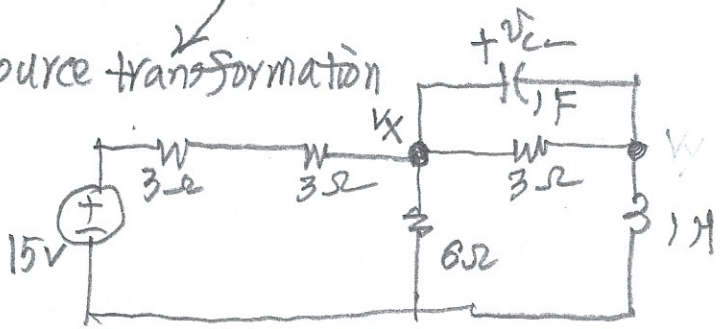 ource transformation
+ Vc -
1F
Vx
3Ω
3Ω
3Ω
Vy
+
15V
6Ω
1H